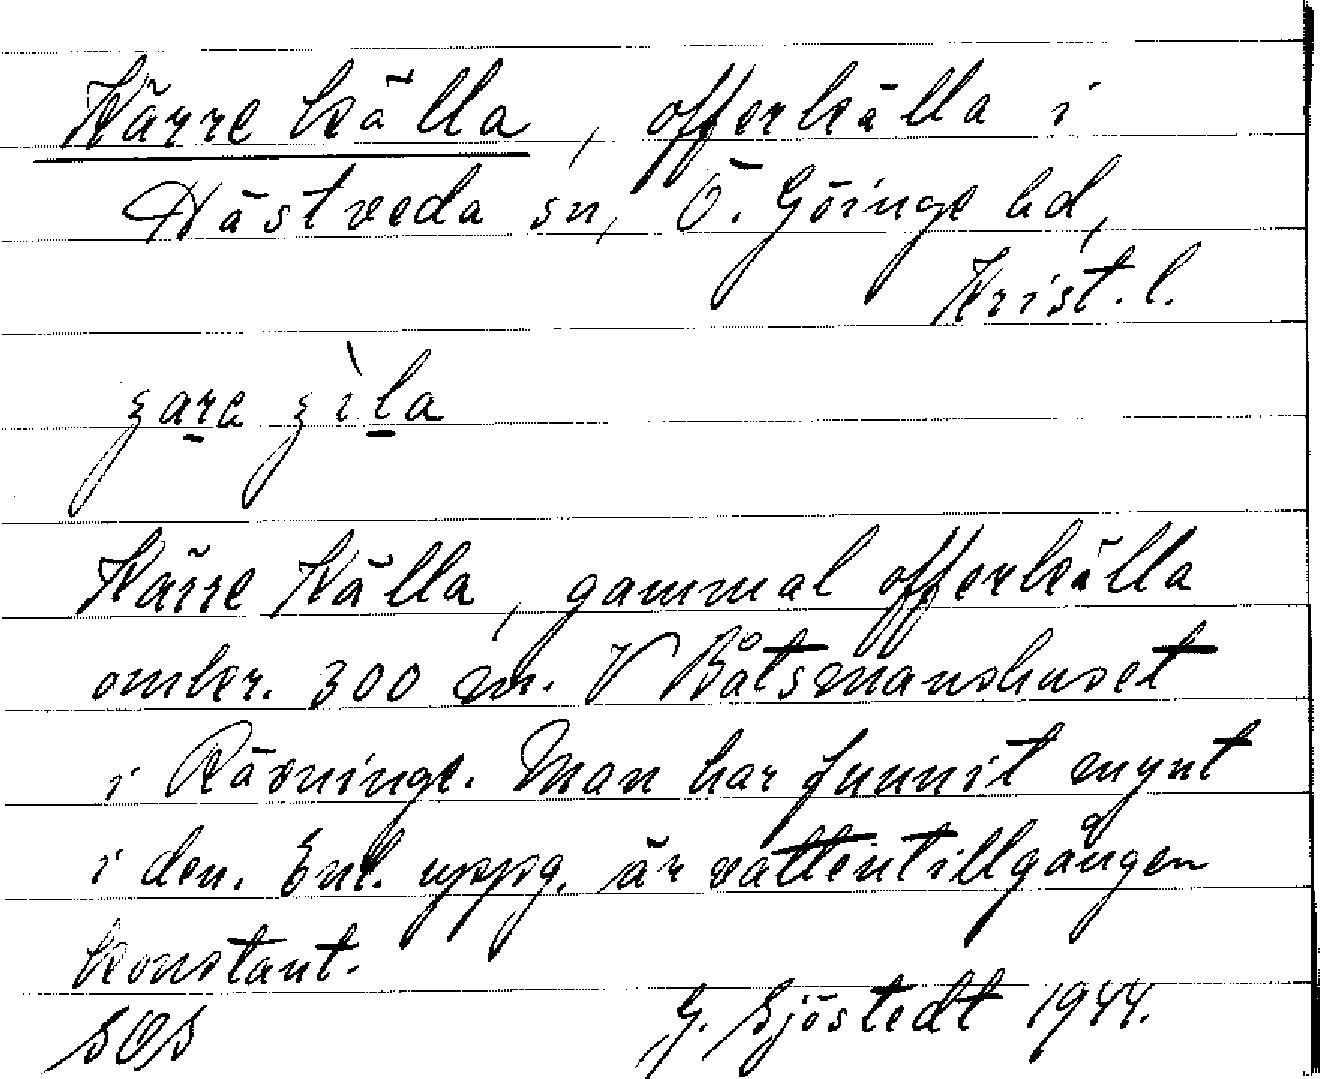 Kärre källa, offerkälla i
Hästveda sn, Ö. Göinge hd,
Krist. l.
Kärre Källa, gammal offerkälla
omkr. 300 m. V Båtsmanshuset
i Rävninge. Man har funnit mynt
i den. Enl. uppg. är vattentillgången
konstant.
SOS G. Sjöstedt 1944.